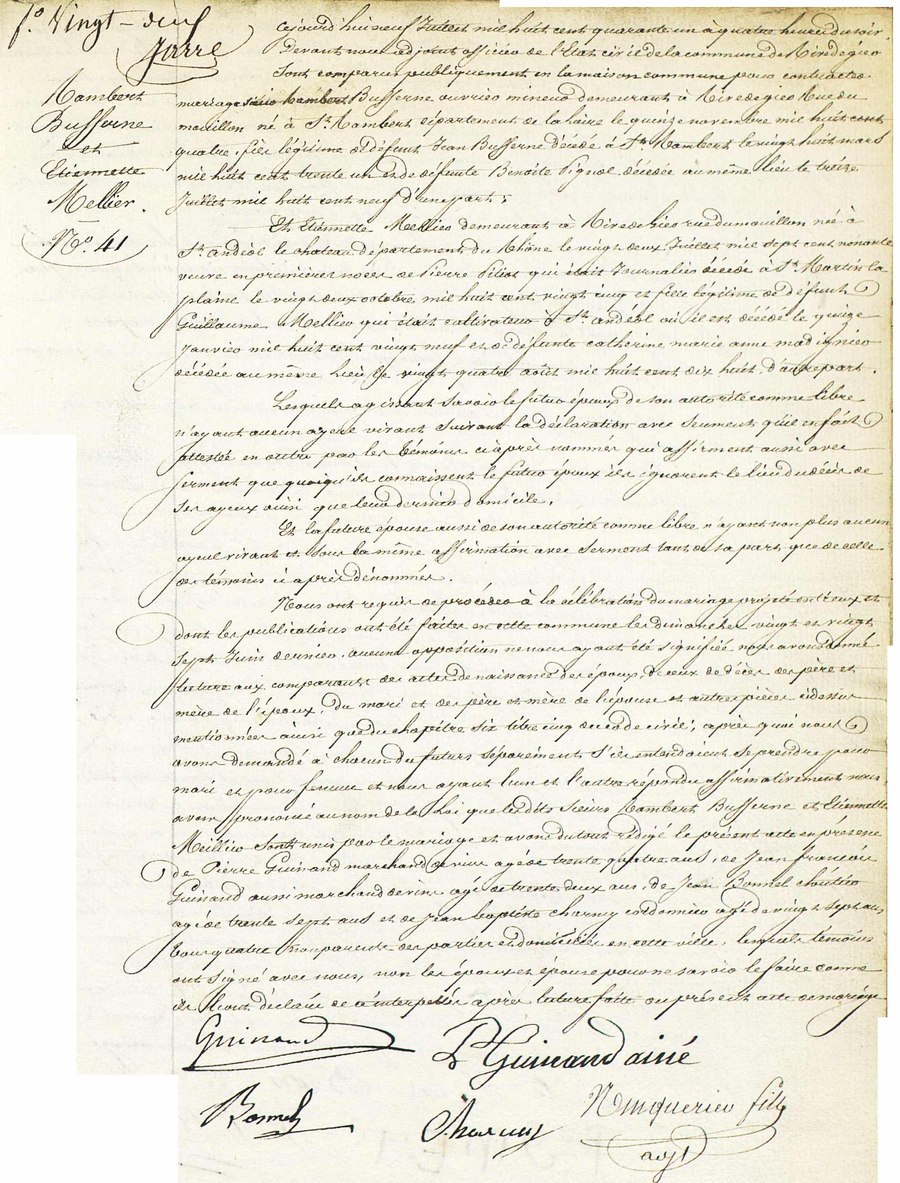 fo. Vingt-deux
Jarre
Rambert
Busserne
et
Etiennette
Mellier.
No. 41
Cejourd'hui neuf Juillet mil huit cent quarante un à quatre heures du soir.
Devant nous adjoint officier de l'Etat civil de la commune de Rivedegier
Sont comparus publiquement en la maison commune pour contracter
mariage sieur Rambert Busserne ouvrier mineur demeurant à Rivedegier rue du
mouillon né à St. Rambert département de la Loire le quinze novembre mil huit cent
quatre, fils légitime de défunt Jean Busserne décédé à St. Rambert le vingt huit mars
mil huit cent trente un et de défunte Benoite Pignol décédée au même lieu le treize
Juillet mil huit cent neuf d'une part;
Et Etiennette Mellier demeurant à Rivedegier rue du mouillon née à
St. andéol le chateau département du Rhône le vingt deux Juillet mil sept cent nonante
veuve en premières noces de Pierre Piliot qui était Journalier décédé à St. Martin la
plaine le vingt deux octobre mil huit cent vingt cinq et fille légitime de défunt
Guillaume Mellier qui était cultivateur à St. andéol où il est décédé le quinze
Janvier mil huit cent vingt neuf et de défunte catherine marie anne madignier
décédée au même lieu, le vingt quatre août mil huit cent dix huit, d'autre part.
Lesquels agissant savoir le futur époux de son autorité comme libre
n'ayant aucun ayeul vivant suivant la déclaration avec serment qu'il en fait
attestée en outre par les témoins ci après nommés qui affirment aussi avec
serment que quoiqu'ils connaissent le futur époux ils ignorent le lieu du décès de
ses ayeux ainsi que leur dernier domicile.
Et la future épouse aussi de son autorité comme libre, n'ayant non plus aucun
ayeul vivant et sous la même affirmation avec serment tant de sa part que de celle
des témoins ci après dénommés.
Nous ont requis de procéder à la célébration du mariage projeté entr'eux et
dont les publications ont été faites en cette commune les dimanches vingt et vingt
sept Juin dernier. aucune opposition ne nous ayant été signifiée nous avons donné
lecture aux comparants des actes de naissance des époux, de ceux de décès des père et
mère de l'époux, du mari et des père et mère de l'épouse et autres pièces cidessus
mentionnées ainsi que du chapitre six titre cinq du code civil; après quoi nous
avons demandé à chacun du futurs séparément s'ils entendaient se prendre pour
mari et pour femme et nous ayant l'un et l'autre répondu affirmativement nous
avons prononcé au nom de la Loi que lesdits sieurs Rambert Busserne et Etiennette
Meillier sont unis par le mariage et avons du tout rédigé le présent acte en présence
de Pierre Guinand marchand de vins agé de trente quatre ans, de Jean François
Guinand aussi marchand de vins agé de trente deux ans, de Jean Bonnel cloutier
agé de trente sept ans et de Jean baptiste charny cordonnier agé de vingt sept ans
tous quatre non parents des parties et domiciliés en cette ville, lesquels témoins
ont signé avec nous, non les époux et épouse pour ne savoir le faire comme
ils l'ont déclaré de ce interpellés après lecture faite du présent acte de mariage
Guinand
P Guinand ainé
Bonnel
Charny
fils
adjt